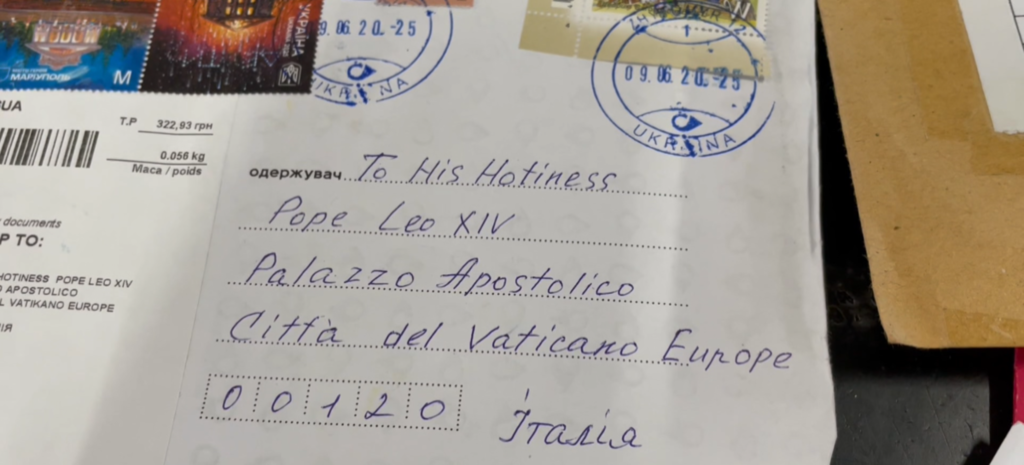 МАРІУПОЛЬ
M
УКРАЇНА
9.06.20.-25
UKRAINA
1
09.06.20.-25
UKRAINA
UA
Т.Р 322,93 грн
0.056 kg
Maca / poids
documents
P TO:
HOTINESS POPE LEO XIV
APOSTOLICO
L VATIKANO EUROPE
ІЯ
одержувач To His Hotiness
Pope Leo XIV
Palazzo Apostolico
Città del Vaticano Europe
00120
Італія